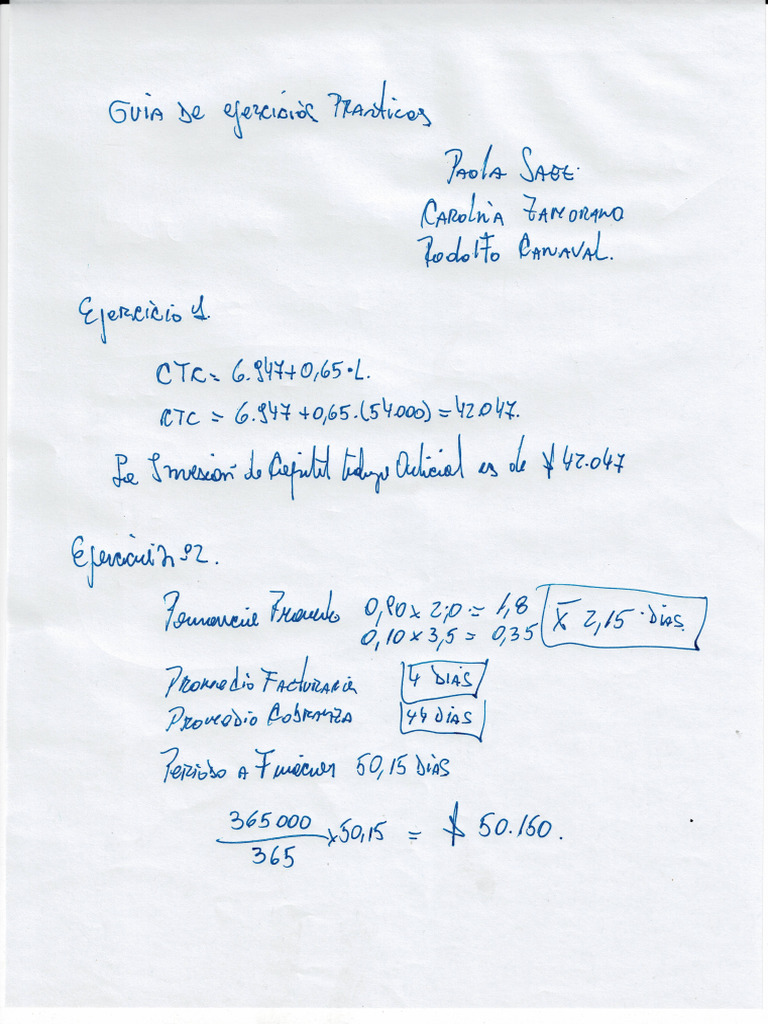 Guia de ejercicios Practicos
Paola Saez.
Carolina Zamorano
Rodolfo Canaval.
Ejercicio 1.
CTC = 6.947 + 0,65 • L.
CTC = 6.947 + 0,65 • (54000) = 42.047.
La Inversion de Capital trabajo es de $ 42.047
Ejercicio Nº 2.
Permanencia Promedio 0,90 x 2,0 = 1,8
0,10 x 3,5 = 0,35
X̄ 2,15 Dias.
Promedio Facturacion 4 Dias
Promedio Cobranza 44 Dias
Periodo a Financiar 50,15 Dias
365000
365
x 50,15 = $ 50.150.